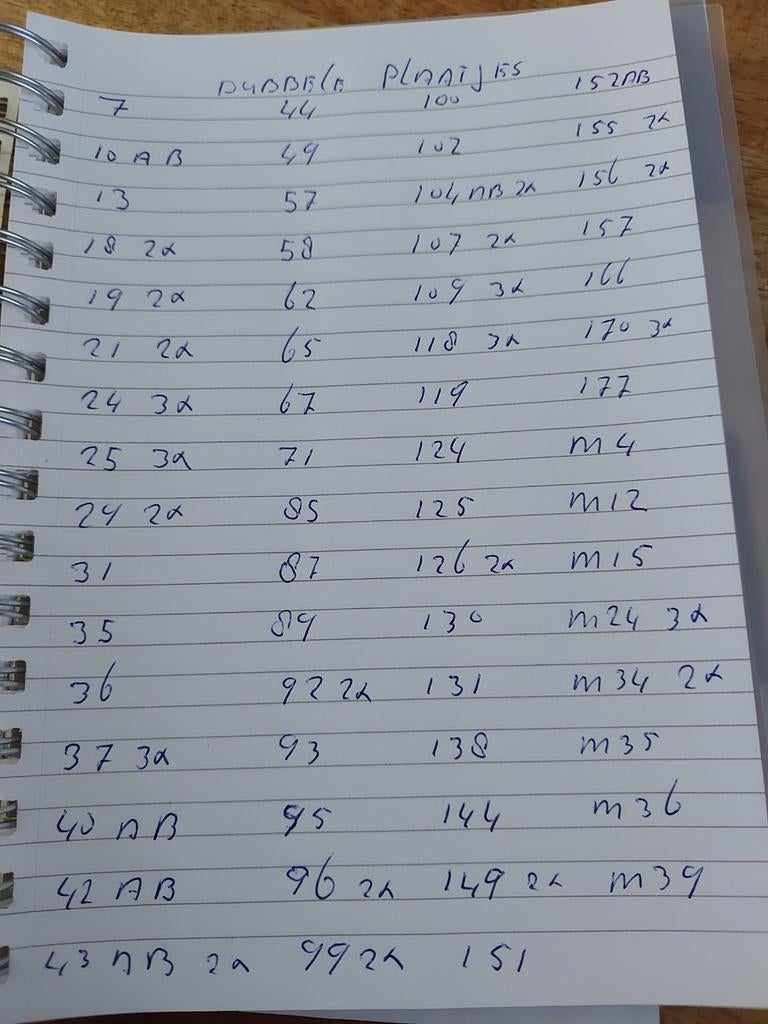 DUBBELE PLAATJES
7 44 100 152AB
10 AB 49 102 155 2x
13 57 104 AB 2x 156 2x
18 2x 58 107 2x 157
19 2x 62 109 3x 166
21 2x 65 118 3x 170 3x
24 3x 67 119 177
25 3x 71 124 M4
29 2x 85 125 M12
31 87 126 2x M15
35 89 130 M24 3x
36 92 2x 131 M34 2x
37 3x 93 138 M35
40 AB 95 144 M36
42 AB 96 2x 149 2x M39
43 AB 2x 99 2x 151